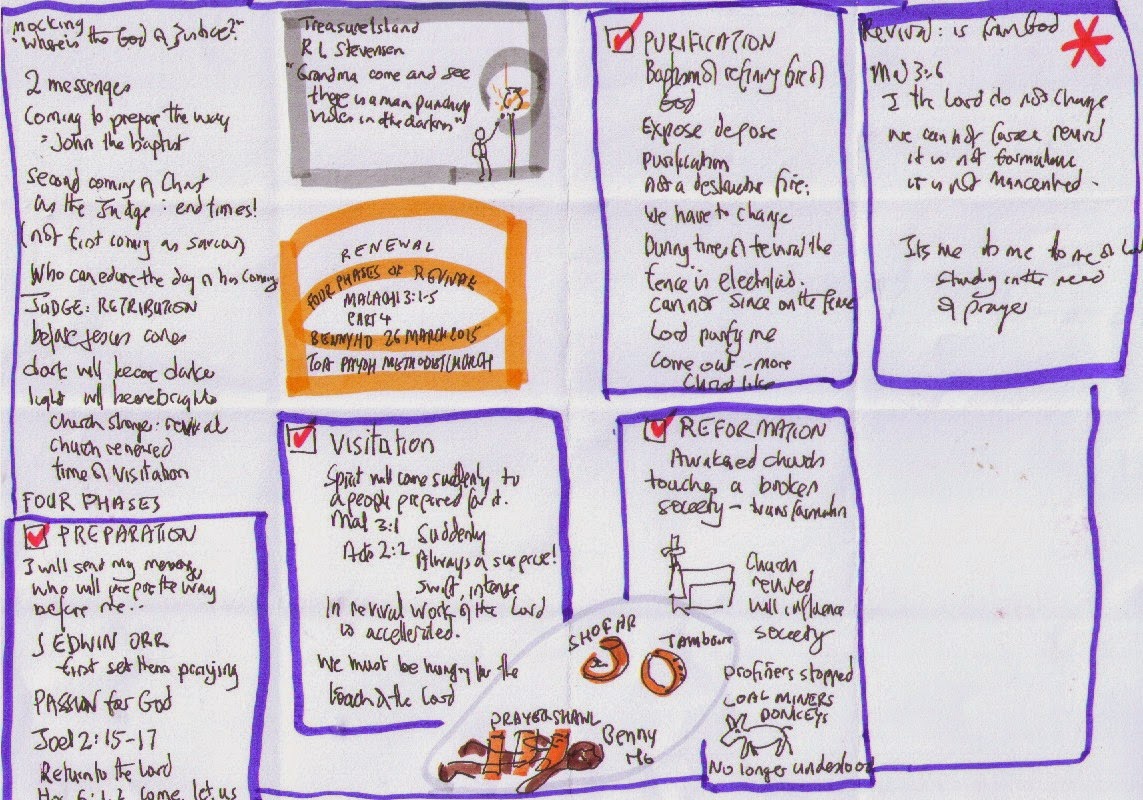 mocking
"Where is the God of Justice?"
2 messengers
Coming to prepare the way
John the baptist
Second coming of Christ
as the Judge: end times!
(not first coming as saviour)
Who can edure the day of his coming
JUDGE: RETRIBUTION
before Jesus comes
dark will become darker
light will become brighter
church strange: revival
church renewed
time of visitation
FOUR PHASES
PREPARATION
I will send my messenger
who will prepare the way
before me..
J EDWIN ORR
first set them praying
PASSION for God
Joel 2:15-17
Return to the Lord
Hos 6:1,2 Come, let us
Treasure Island
R L Stevenson
"Grandma come and see
there is a man punching
holes in the darkness"
RENEWAL
FOUR PHASES OF REVIVAL
MALACHI 3:1-5
PART 4
BENNY HO 26 MARCH 2015
TOA PAYOH METHODIST CHURCH
Visitation
Spirit will come suddenly to
a people prepared for it.
Mal 3:1
Suddenly
Acts 2:2
Always a surprise!
swift, intense
In revival work of the Lord
is accellerated.
We must be hungry for the
the Lord
SHOFAR
PRAYER SHAWL
Benny
Ho
PURIFICATION
Baptism of refining fire of
God
Expose depose
purification
not a destructive fire:
We have to change
During times of renewal the
fence is electrified.
cannot since on the fence
Lord purify me
Come out - more
Christ like
REFORMATION
Awakened church
touches a broken
society - transformation
Church
revived
will influence
society
COAL MINERS
DONKEYS
No longer understood
Revival: is from God
Mal 3:6
I the Lord do not change
We can not force revival
it is not formalinic
it is not mancentred.
Its me its me its me O Lord
standing in the need
of prayer